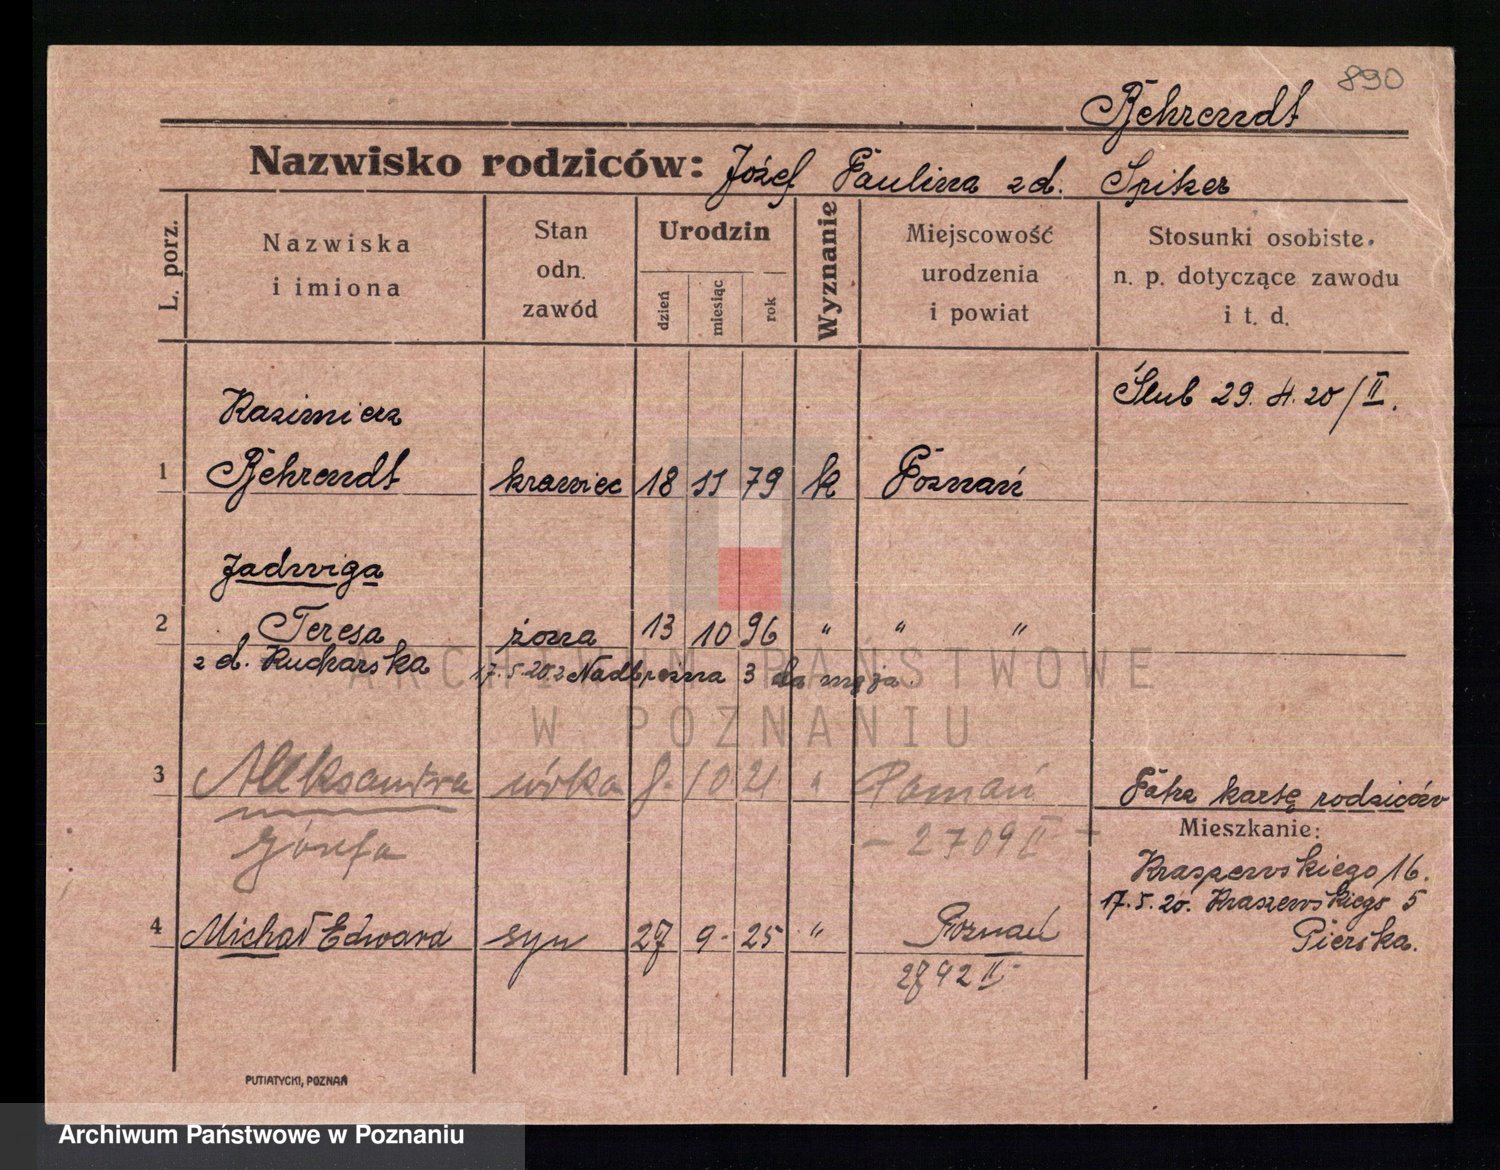 890
Behrendt
Nazwisko rodziców: Józef Paulina zd. Spiker
L. porz.
Nazwiska i imiona
Stan odn. zawód
Urodzin
dzień miesiąc rok
Wyznanie
Miejscowość urodzenia i powiat
Stosunki osobiste. n. p. dotyczące zawodu i t. d.
Ślub 29. 4. 20/II.
Kazimierz
1 Behrendt krawiec 18 11 79 k Poznań
Jadwiga
2 Teresa żona 13 10 96 " " "
zd. Kucharska 17.5.20 z Nadbrzeżna 3 da męża.
3 Aleksandra córka 8. 10 21 " Poznań
Józefa - 2709 II +
Patrz kartę rodziców
Mieszkanie:
Kraszewskiego 16.
17.5.20. Kraszewskiego 5
Pierska.
4 Michał Edward syn 27 9 - 25 " Poznań
2792 II -
PUTIATYCKI, POZNAŃ
ARCHIWUM PAŃSTWOWE
W POZNANIU
Archiwum Państwowe w Poznaniu